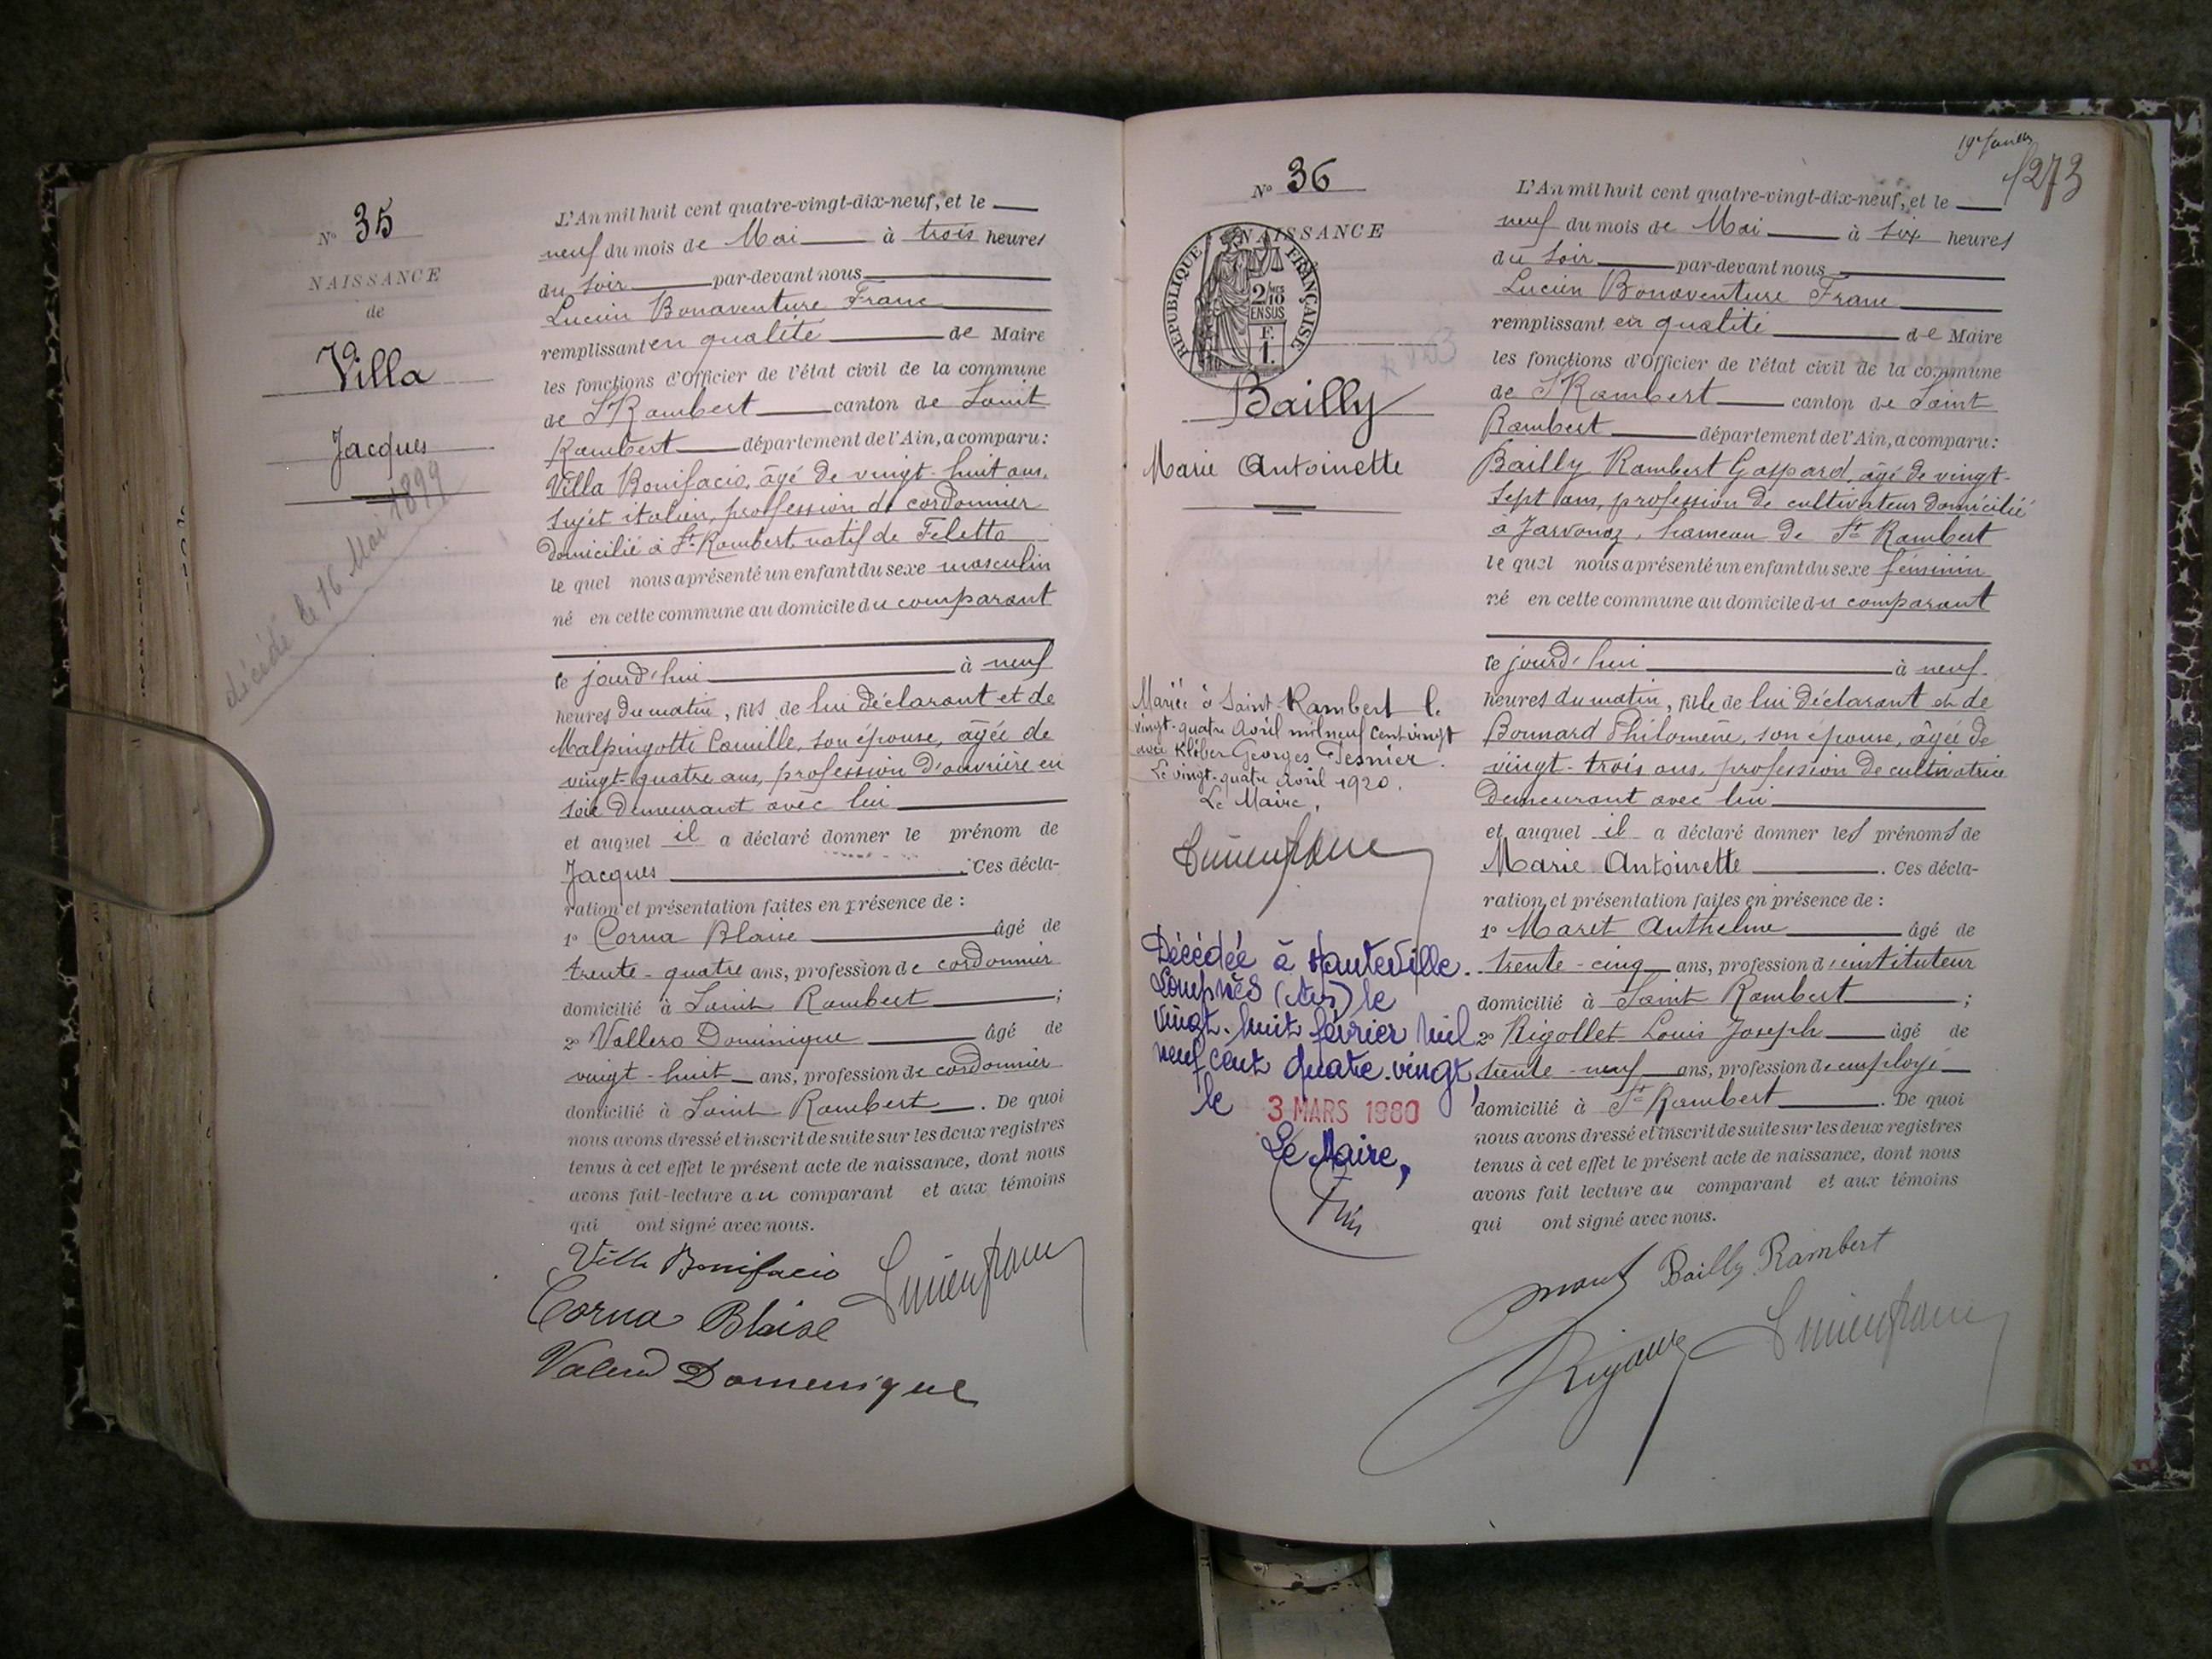 N° 35
NAISSANCE
de
Villa
Jacques
décédé le 16 Mai 1899
L'An mil huit cent quatre-vingt-dix-neuf, et le
neuf du mois de Mai à trois heures
du soir par-devant nous
Lucien Bonaventure Franc
remplissant en qualité de Maire
les fonctions d'Officier de l'état civil de la commune
de St Rambert canton de Saint
Rambert département de l'Ain, a comparu:
Villa Bonifacio, âgé de vingt-huit ans,
sujet italien, profession de cordonnier
domicilié à St Rambert, natif de Feletto
le quel nous a présenté un enfant du sexe masculin
né en cette commune au domicile du comparant
ce jourd'hui à neuf
heures du matin, fils de lui déclarant et de
Malpingotti Camille, son épouse, âgée de
vingt-quatre ans, profession d'ouvrière en
soie demeurant avec lui
et auquel il a déclaré donner le prénom de
Jacques. Ces décla-
ration et présentation faites en présence de :
1° Corna Blaise âgé de
trente-quatre ans, profession de cordonnier
domicilié à Saint Rambert ;
2° Vallero Dominique âgé de
vingt-huit ans, profession de cordonnier
domicilié à Saint Rambert. De quoi
nous avons dressé et inscrit de suite sur les deux registres
tenus à cet effet le présent acte de naissance, dont nous
avons fait lecture au comparant et aux témoins
qui ont signé avec nous.
Villa Bonifacio Lucien Franc
Corna Blaise
Valero Domenique
19e feuillet
273
N° 36
NAISSANCE
REPUBLIQUE FRANÇAISE
2/10 EN SUS
F.
1.
Bailly
Marie Antoinette
Mariée à Saint Rambert le
vingt-quatre Avril mil neuf cent vingt
avec Kléber Georges Tesnier.
Le vingt-quatre Avril 1920.
Le Maire,
Lucien Franc
Décédée à Hauteville.
Lompnès (Ain) le
vingt-huit février mil
neuf cent quatre-vingt,
le 3 MARS 1980
Le Maire,
L'An mil huit cent quatre-vingt-dix-neuf, et le
neuf du mois de Mai à six heures
du soir par-devant nous
Lucien Bonaventure Franc
remplissant en qualité de Maire
les fonctions d'Officier de l'état civil de la commune
de St Rambert canton de Saint
Rambert département de l'Ain, a comparu:
Bailly Rambert Gaspard, âgé de vingt-
sept ans, profession de cultivateur domicilié
à Jarvonoz, hameau de St Rambert
le quel nous a présenté un enfant du sexe féminin
né en cette commune au domicile du comparant
ce jourd'hui à neuf
heures du matin, fille de lui déclarant et de
Bonnard Philomène, son épouse, âgée de
vingt-trois ans, profession de cultivatrice
demeurant avec lui
et auquel il a déclaré donner les prénoms de
Marie Antoinette. Ces décla-
ration et présentation faites en présence de :
1° Maret Anthelme âgé de
trente-cinq ans, profession d'instituteur
domicilié à Saint Rambert ;
2° Rigollet Louis Joseph âgé de
trente-neuf ans, profession de employé
domicilié à St Rambert. De quoi
nous avons dressé et inscrit de suite sur les deux registres
tenus à cet effet le présent acte de naissance, dont nous
avons fait lecture au comparant et aux témoins
qui ont signé avec nous.
Bailly Rambert
Lucien Franc